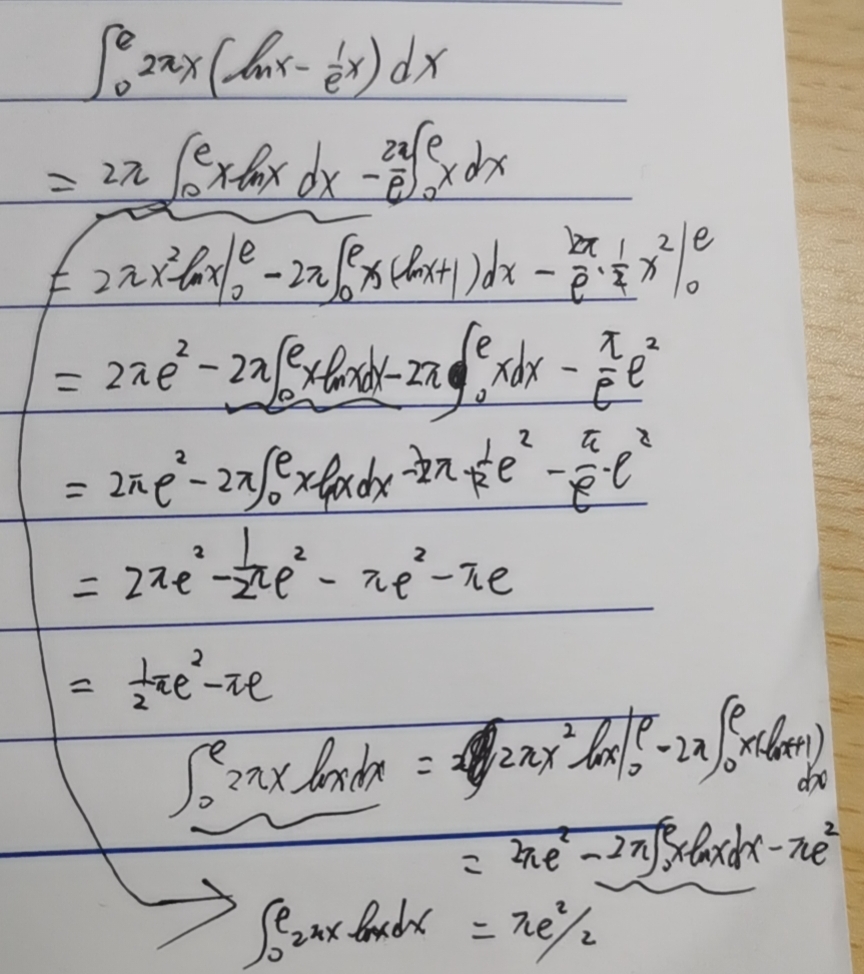 ∫₀ᵉ 2πx(lnx - 1/e x) dx
= 2π ∫₀ᵉ x lnx dx - 2π/e ∫₀ᵉ x dx
= 2πx² lnx|₀ᵉ - 2π∫₀ᵉ x(lnx+1)dx - 2π/e · 1/2 x²|₀ᵉ
= 2πe² - 2π∫₀ᵉ x lnx dx - 2π∫₀ᵉ x dx - π/e e²
= 2πe² - 2π∫₀ᵉ x lnx dx - 2π · 1/2 e² - π/e · e²
= 2πe² - 1/2 πe² - πe² - πe
= 1/2 πe² - πe
∫₀ᵉ 2πx lnx dx = 2πx² lnx|₀ᵉ - 2π∫₀ᵉ x(lnx+1) dx
= 2πe² - 2π∫₀ᵉ x lnx dx - πe²
∫₀ᵉ 2πx lnx dx = πe²/2